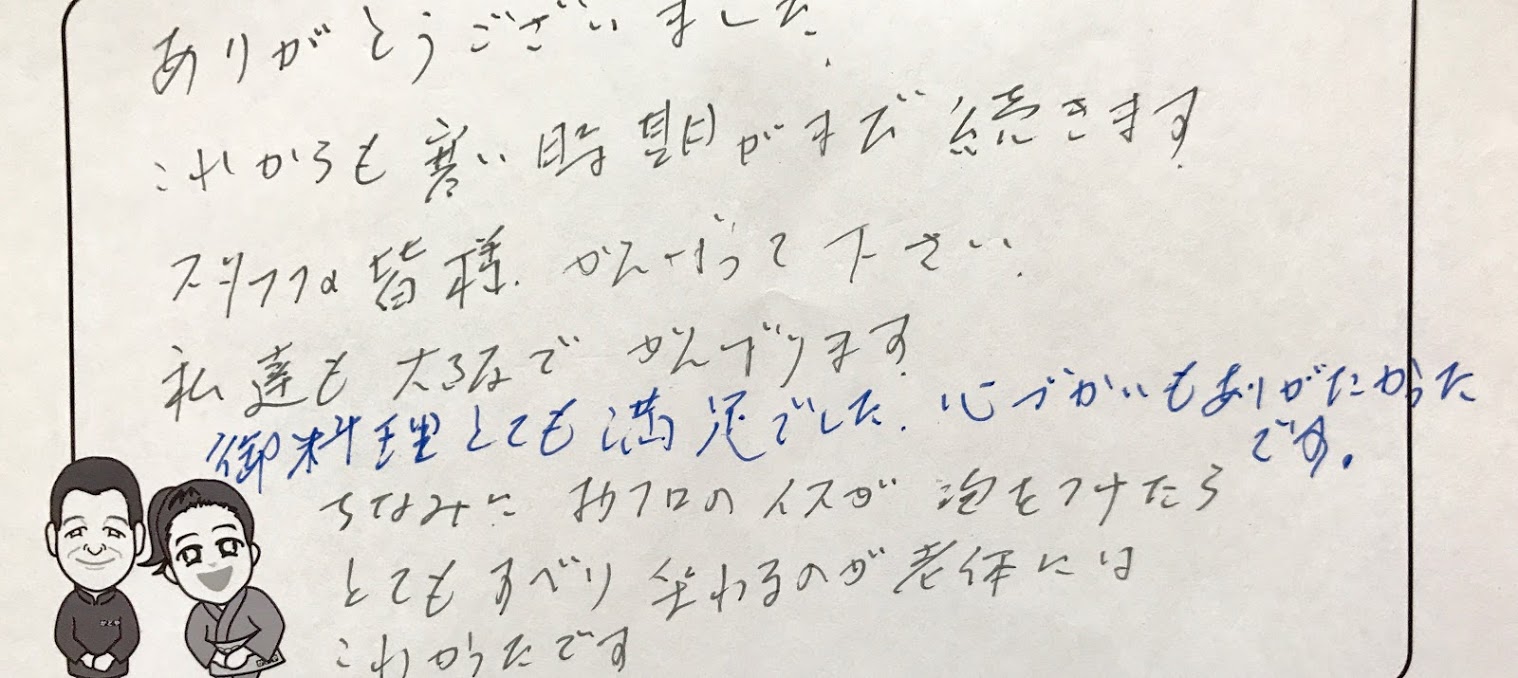 ありがとうございました.
これからも寒い時期がまだ続きます.
スタッフの皆様.がんばって下さい.
私達も大阪でがんばります.
御料理とても満足でした.心づかいもありがたかった
です.
ちなみに おフロのイスが 泡をつけたら
とてもすべり 坐わるのが老体には
これわかったです